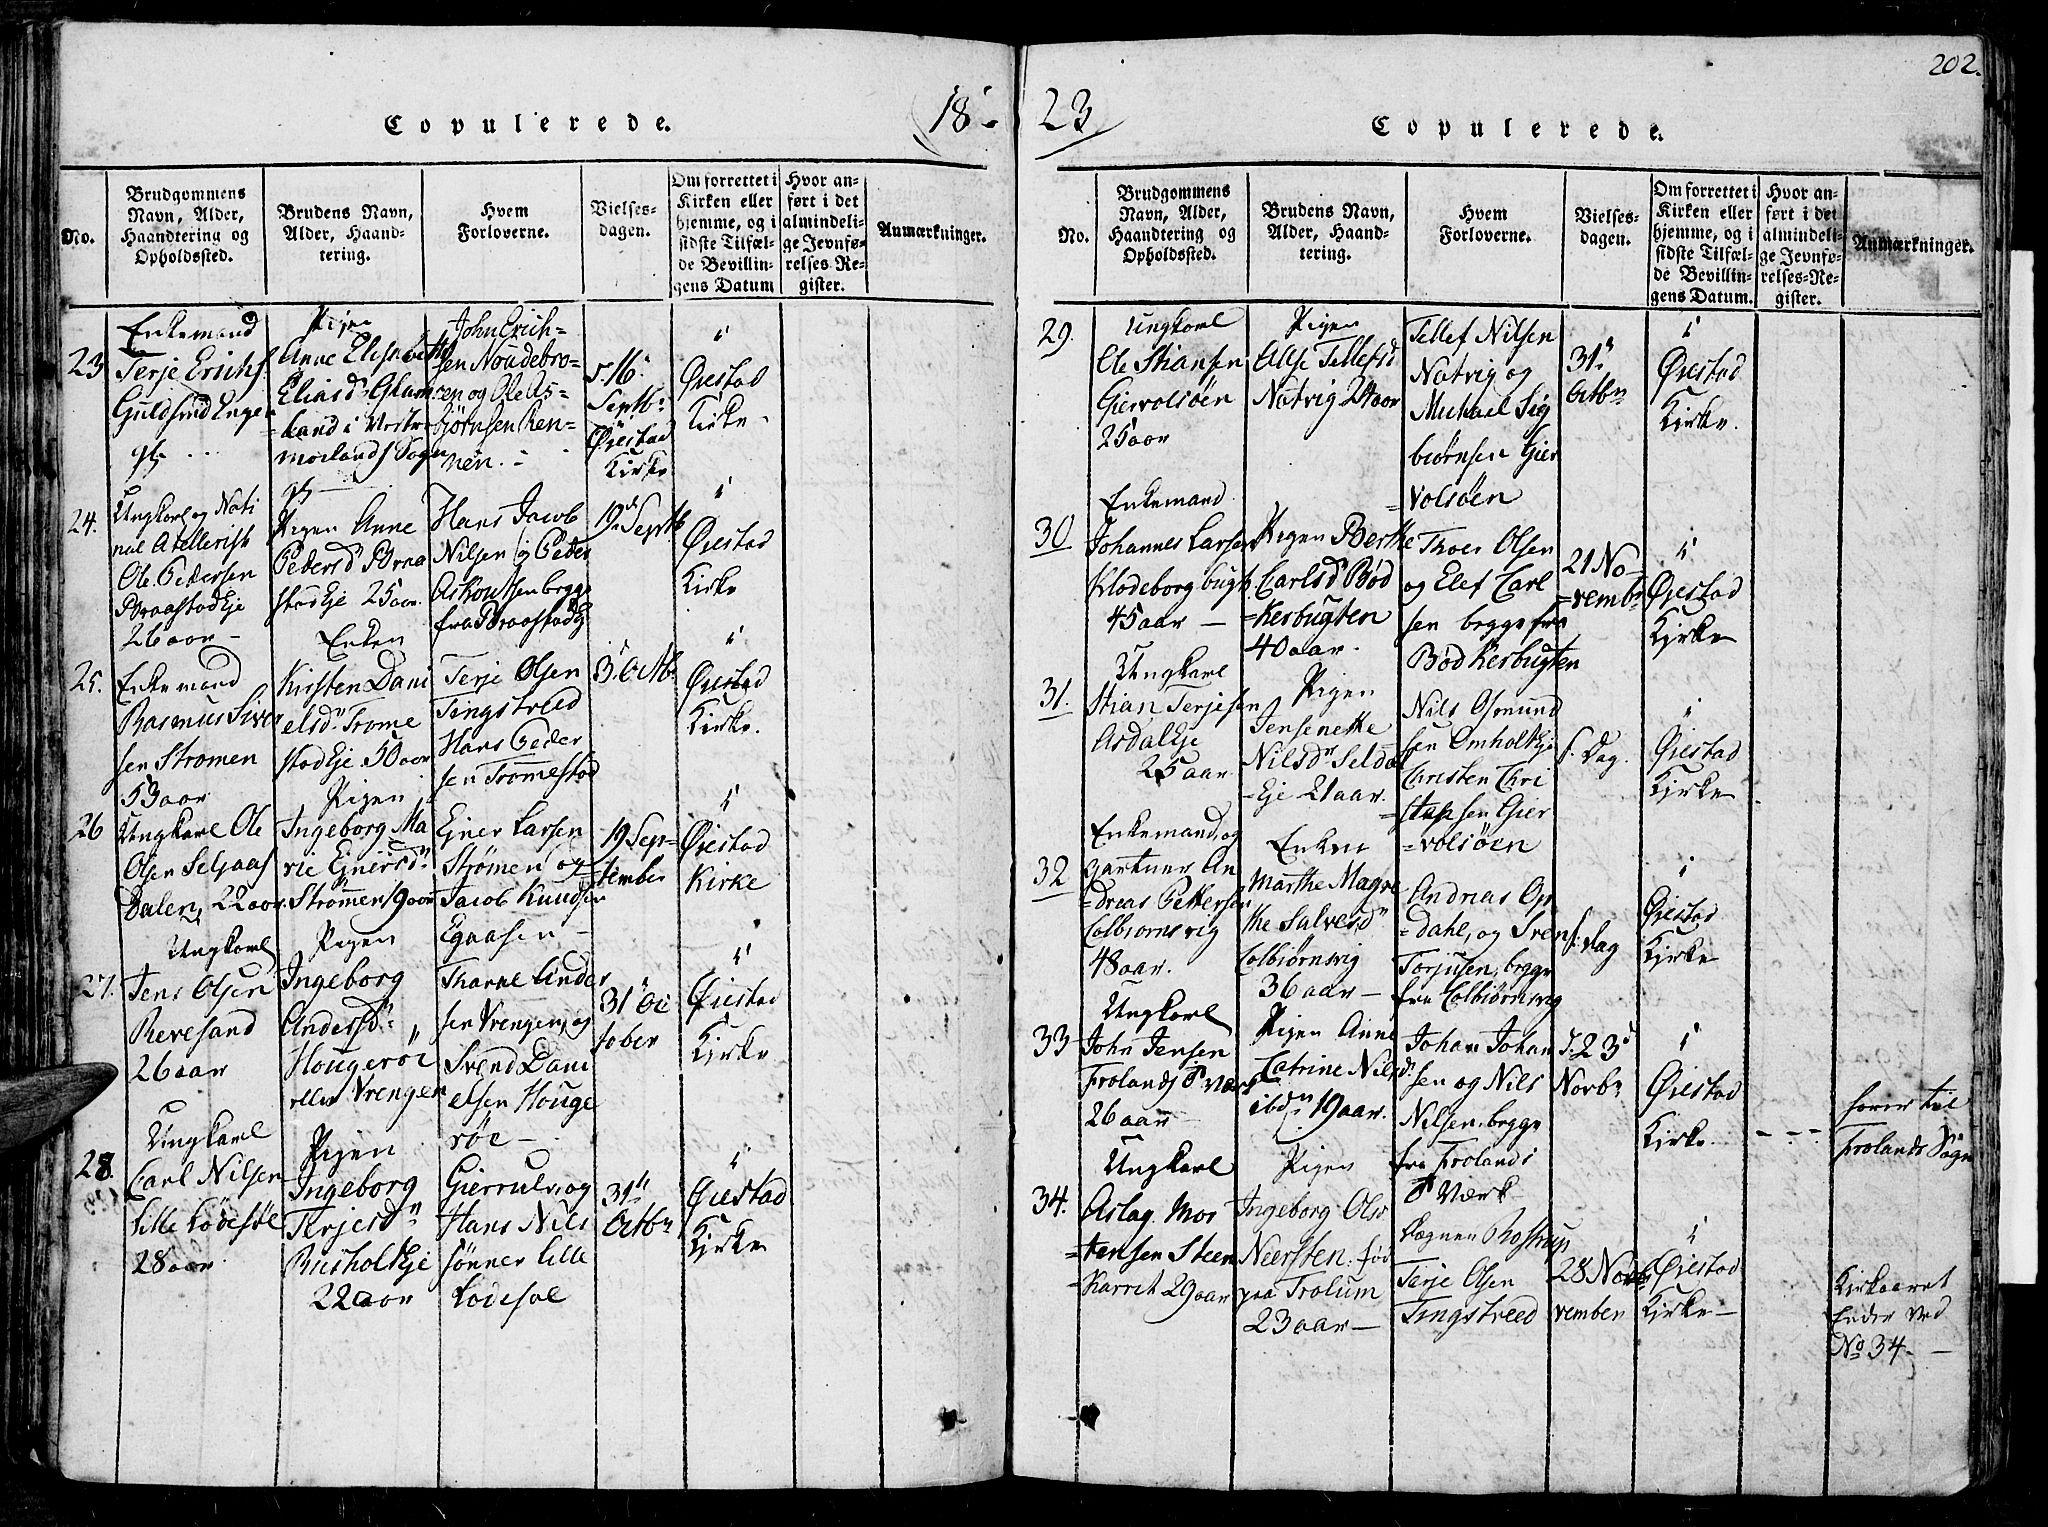 202.
18
23
Copulerede.
No.
Brudgommens Navn, Alder, Haandtering og Opholdssted.
Brudens Navn, Alder, Haandtering.
Hvem Forloverne.
Vielsesdagen.
Om forrettet i Kirken eller hjemme, og i sidste Tilfælde Bevillingens Datum
Hvor anført i det almindelige Jevnførelses-Register.
Anmærkninger.
23
Enkemand
Terje Erichs.
Guldsmd Enge
Pigen
Anne Elisabeth
Eliasdr Glam
land i Vestre
Moelands Sogn
John Erich-
sen Noudebro-
en og Ole As-
björnsen Ren-
nen.
d. 16
Septb.
Øiestad
Kirke
i
Øiestad
Kirke
24.
Ungkarl og Nati
nal Atellerist
Ole Pedersen
Braastad Eje
26 aar
Pigen Anne
Pedersd Braa
stad Eje 25 aar.
Hans Jacob
Nilsen og Peder
Askoutsen begge
fra Braastad Ej
19d Septb
i
Øiestad
Kirke
25.
Enkemand
Rasmus Siver
sen Strömen
53 aar
Enken
Kirsten Dani
elsdr Trome
stad Eje 50 aar
Terje Olsen
Tingstveed
Hans Peder
sen Tromestad
3. Octb
i
Øiestad
Kirke.
26
Ungkarl Ole
Olsen Seljaas
Dalen, 22 aar
Pigen
Ingeborg Ma
rie Ejnersdr
Strömen 19 aar
Ejner Larsen
Strømen og
Jacob Knudsen
Egaasen
19 Sep-
tember
i
Øiestad
Kirke
27.
Ungkarl
Jens Olsen
Revesand
26 aar
Pigen
Ingeborg
Andersdr
Hougeröe
eller Vrengen
Tharal Ander
sen Vrengen, og
Svend Dani
elsen Houge
röe
31 Oc
tober
i
Øiestad
Kirke
28.
Ungkarl
Carl Nilsen
Lille Lödesöl
28 aar.
Pigen
Ingeborg
Terjesdr
Rusholt Eje
22 aar
Gierruls, og
Hans Nils
sönner Lille
Lödesöl
31te
Octbr
i
Øiestad
Kirke
Copulerede.
No.
Brudgommens Navn, Alder, Haandtering og Opholdssted.
Brudens Navn, Alder, Haandtering.
Hvem Forloverne.
Vielsesdagen.
Om forrettet i Kirken eller hjemme, og i sidste Tilfælde Bevillingens Datum.
Hvor anført i det almindelige Jevnførelses-Register.
Anmærkninger.
29.
Ungkarl
Ole Stiansen
Giervolsöen
25 aar
Pigen
Alse Tellefsd
Natvig 24 aar
Tellef Nilsen
Natvig og
Michael Sig
biørnsen Gier
volsöen
31.
Octbr
i
Øiestad
Kirke.
30
Enkemand
Johannes Larsen
Klodeborg bugt
45 aar
Pigen Berthe
Carlsd Bød
kerbugten
40 aar.
Thoer Olsen
og Elef Carl
sen begge fra
Bødkerbugten
21 No-
vembr
i
Øiestad
Kirke
31.
Ungkarl
Stian Terjesen
Asdal Eje
25 aar
Pigen
Jensenette
Nilsdr Seldal
Eje 21 aar.
Nils Osmund
sen Omholt Eje
Christen Chri
stophsen Gier
volsöen
s. Dag.
i
Øiestad
Kirke
32
Enkemand, og
Gartner An
dreas Pettersen
Colbiornsvig
48 aar.
Enken
Marthe Magre
the Salvesdr
Colbiørnsvig
36 aar
Andrias Op
dahl, og Sven
Torjusen, begge
fra Colbiørnsvig
s. dag
i
Øiestad
Kirke
33
Ungkarl
John Jensen
Frolands Værk
26 aar
Pigen Anne
Catrine Nilsd.
ibdm 19 aar.
Johan Johan
sen og Nils
Nilsen, begge
fra Frolands
Værk
d. 23d
Novbr
i
Øiestad
Kirke.
hører til
Frolands Sogn
34.
Ungkarl
Aslag Mor
tensen Steen
Karret 29 aar
Pigen
Ingeborg Olsd
Neersten, föd
paa Trolum
23 aar
Terje Olsen
Tingstveed
28 No
vember
i
Øiestad
Kirke
Kirkaaret
Ender ved
No 34